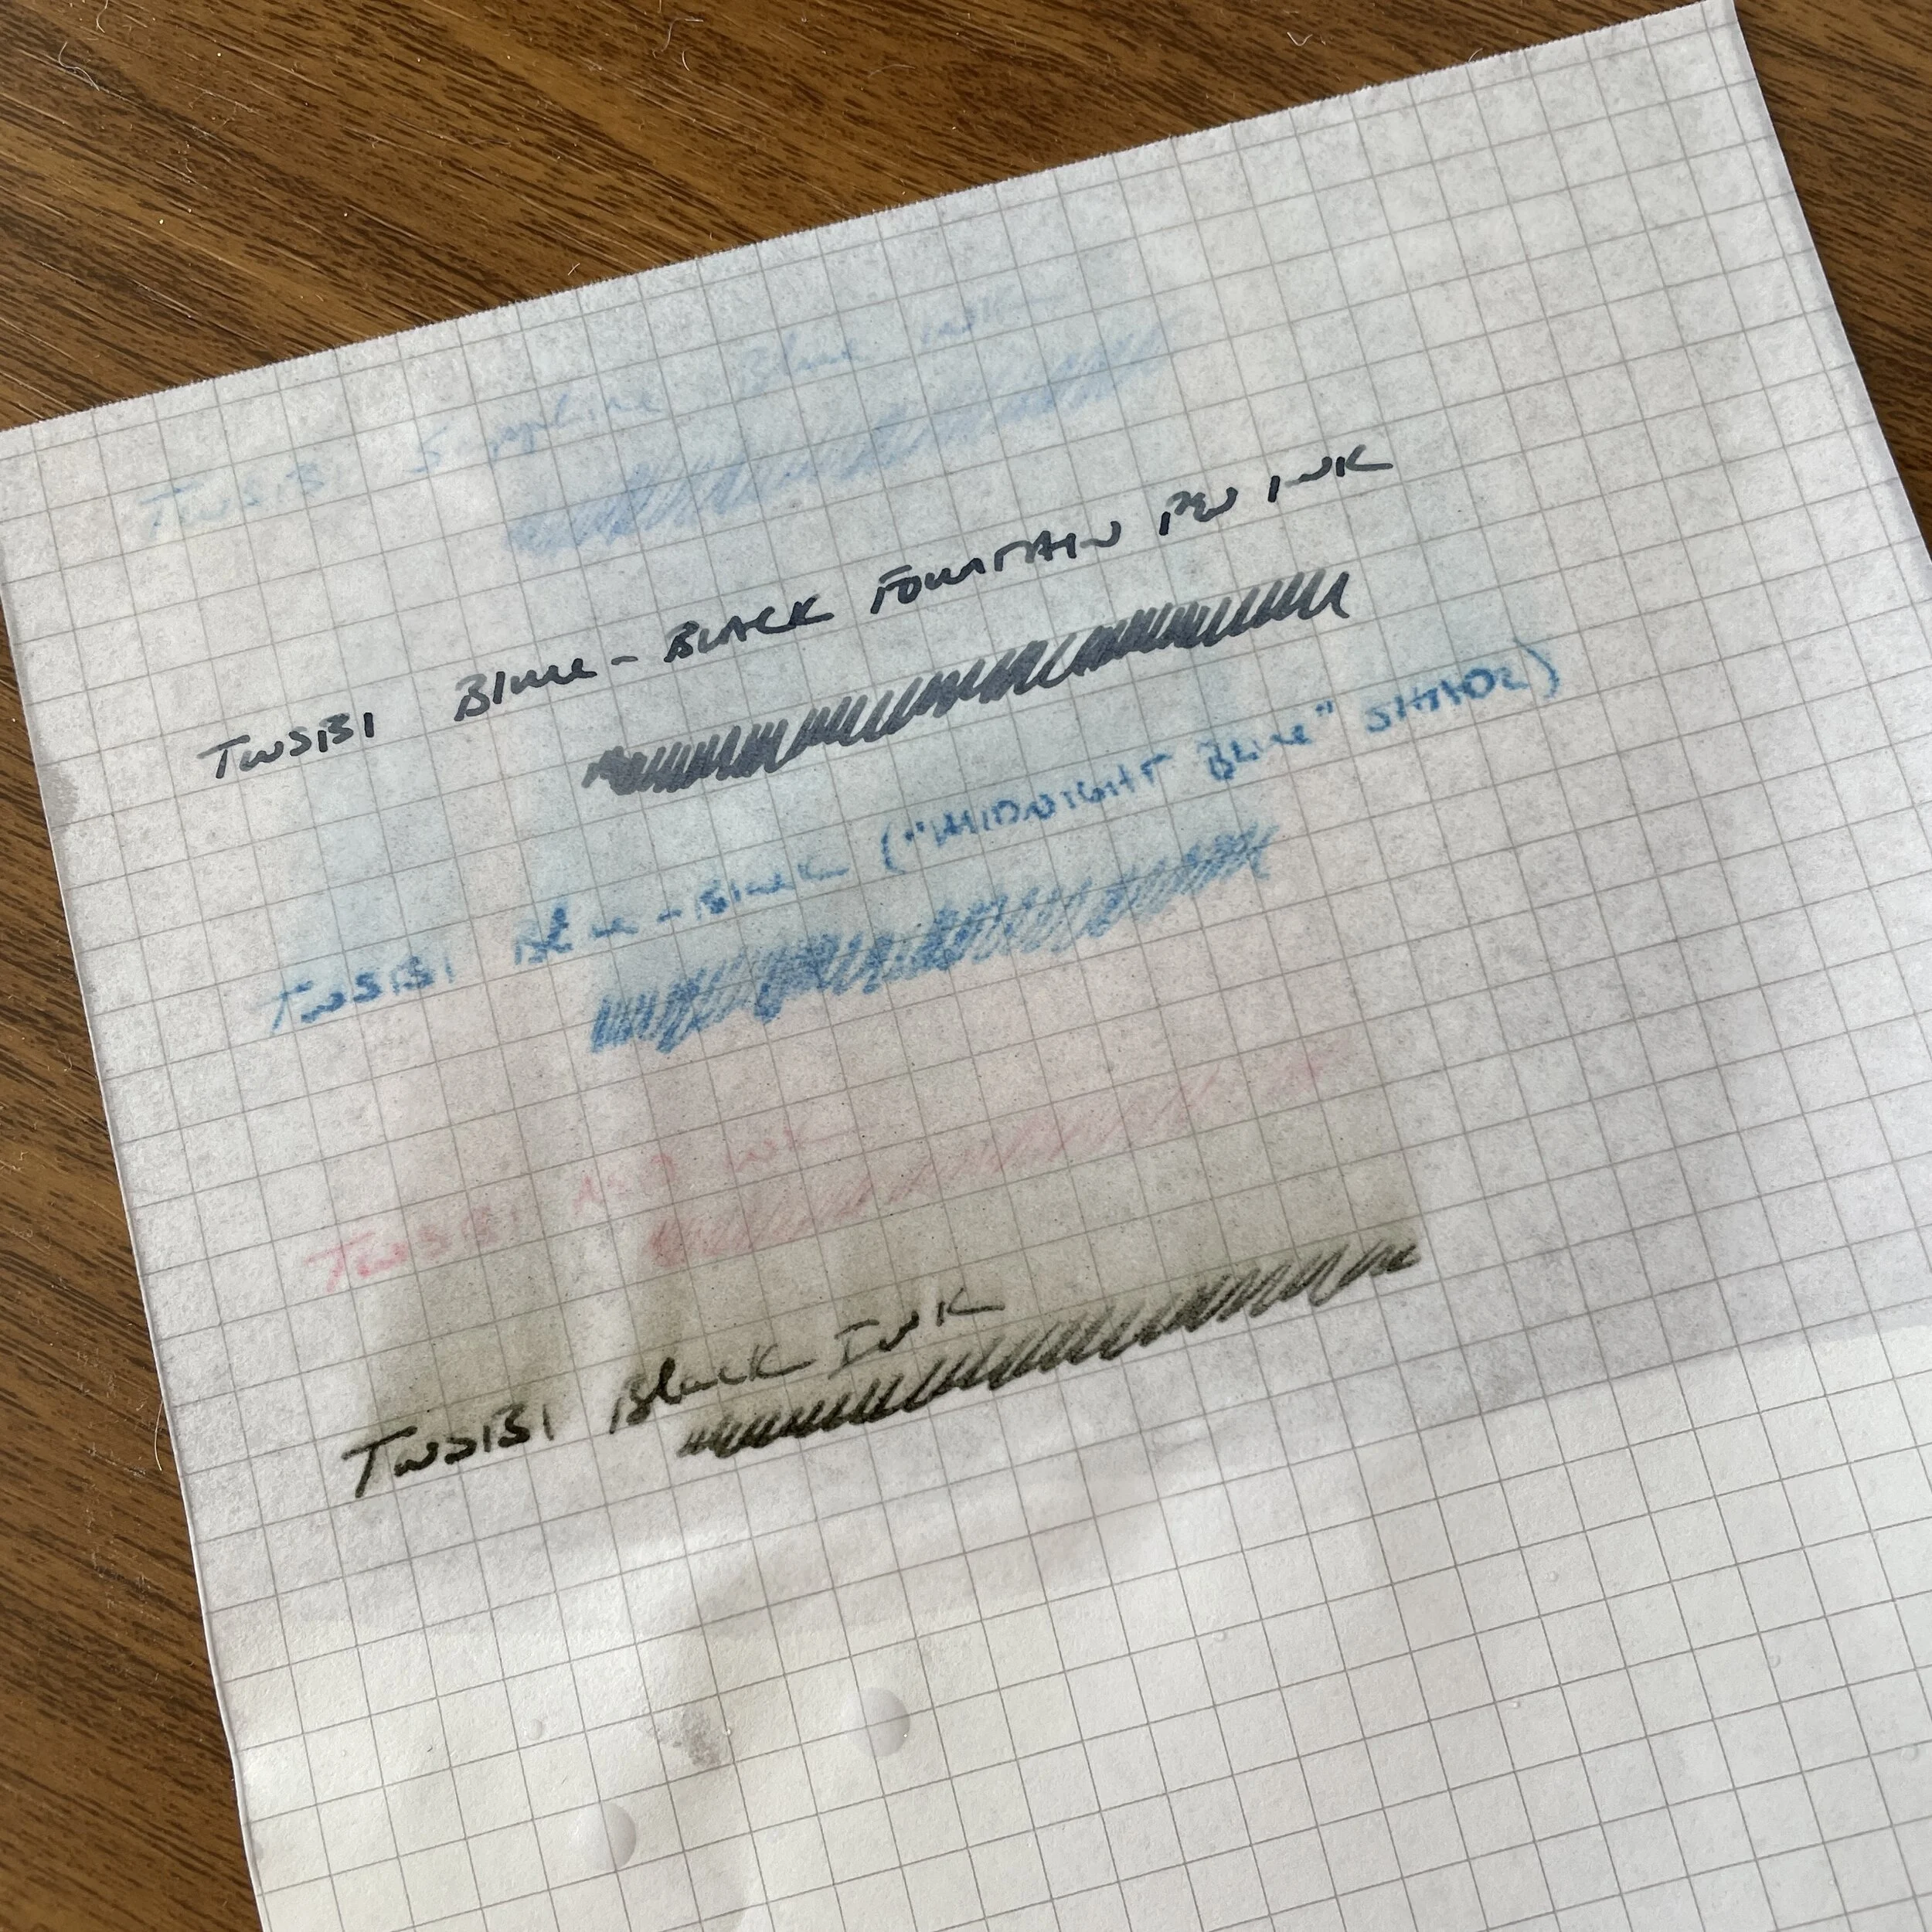 TWSBI Sapphire Blue ink
TWSBI Blue-BLACK FOUNTAIN PEN INK
TWSBI Blue-Black ("MIDNIGHT BLUE" SHADE)
TWSBI RED INK
TWSBI Black INK